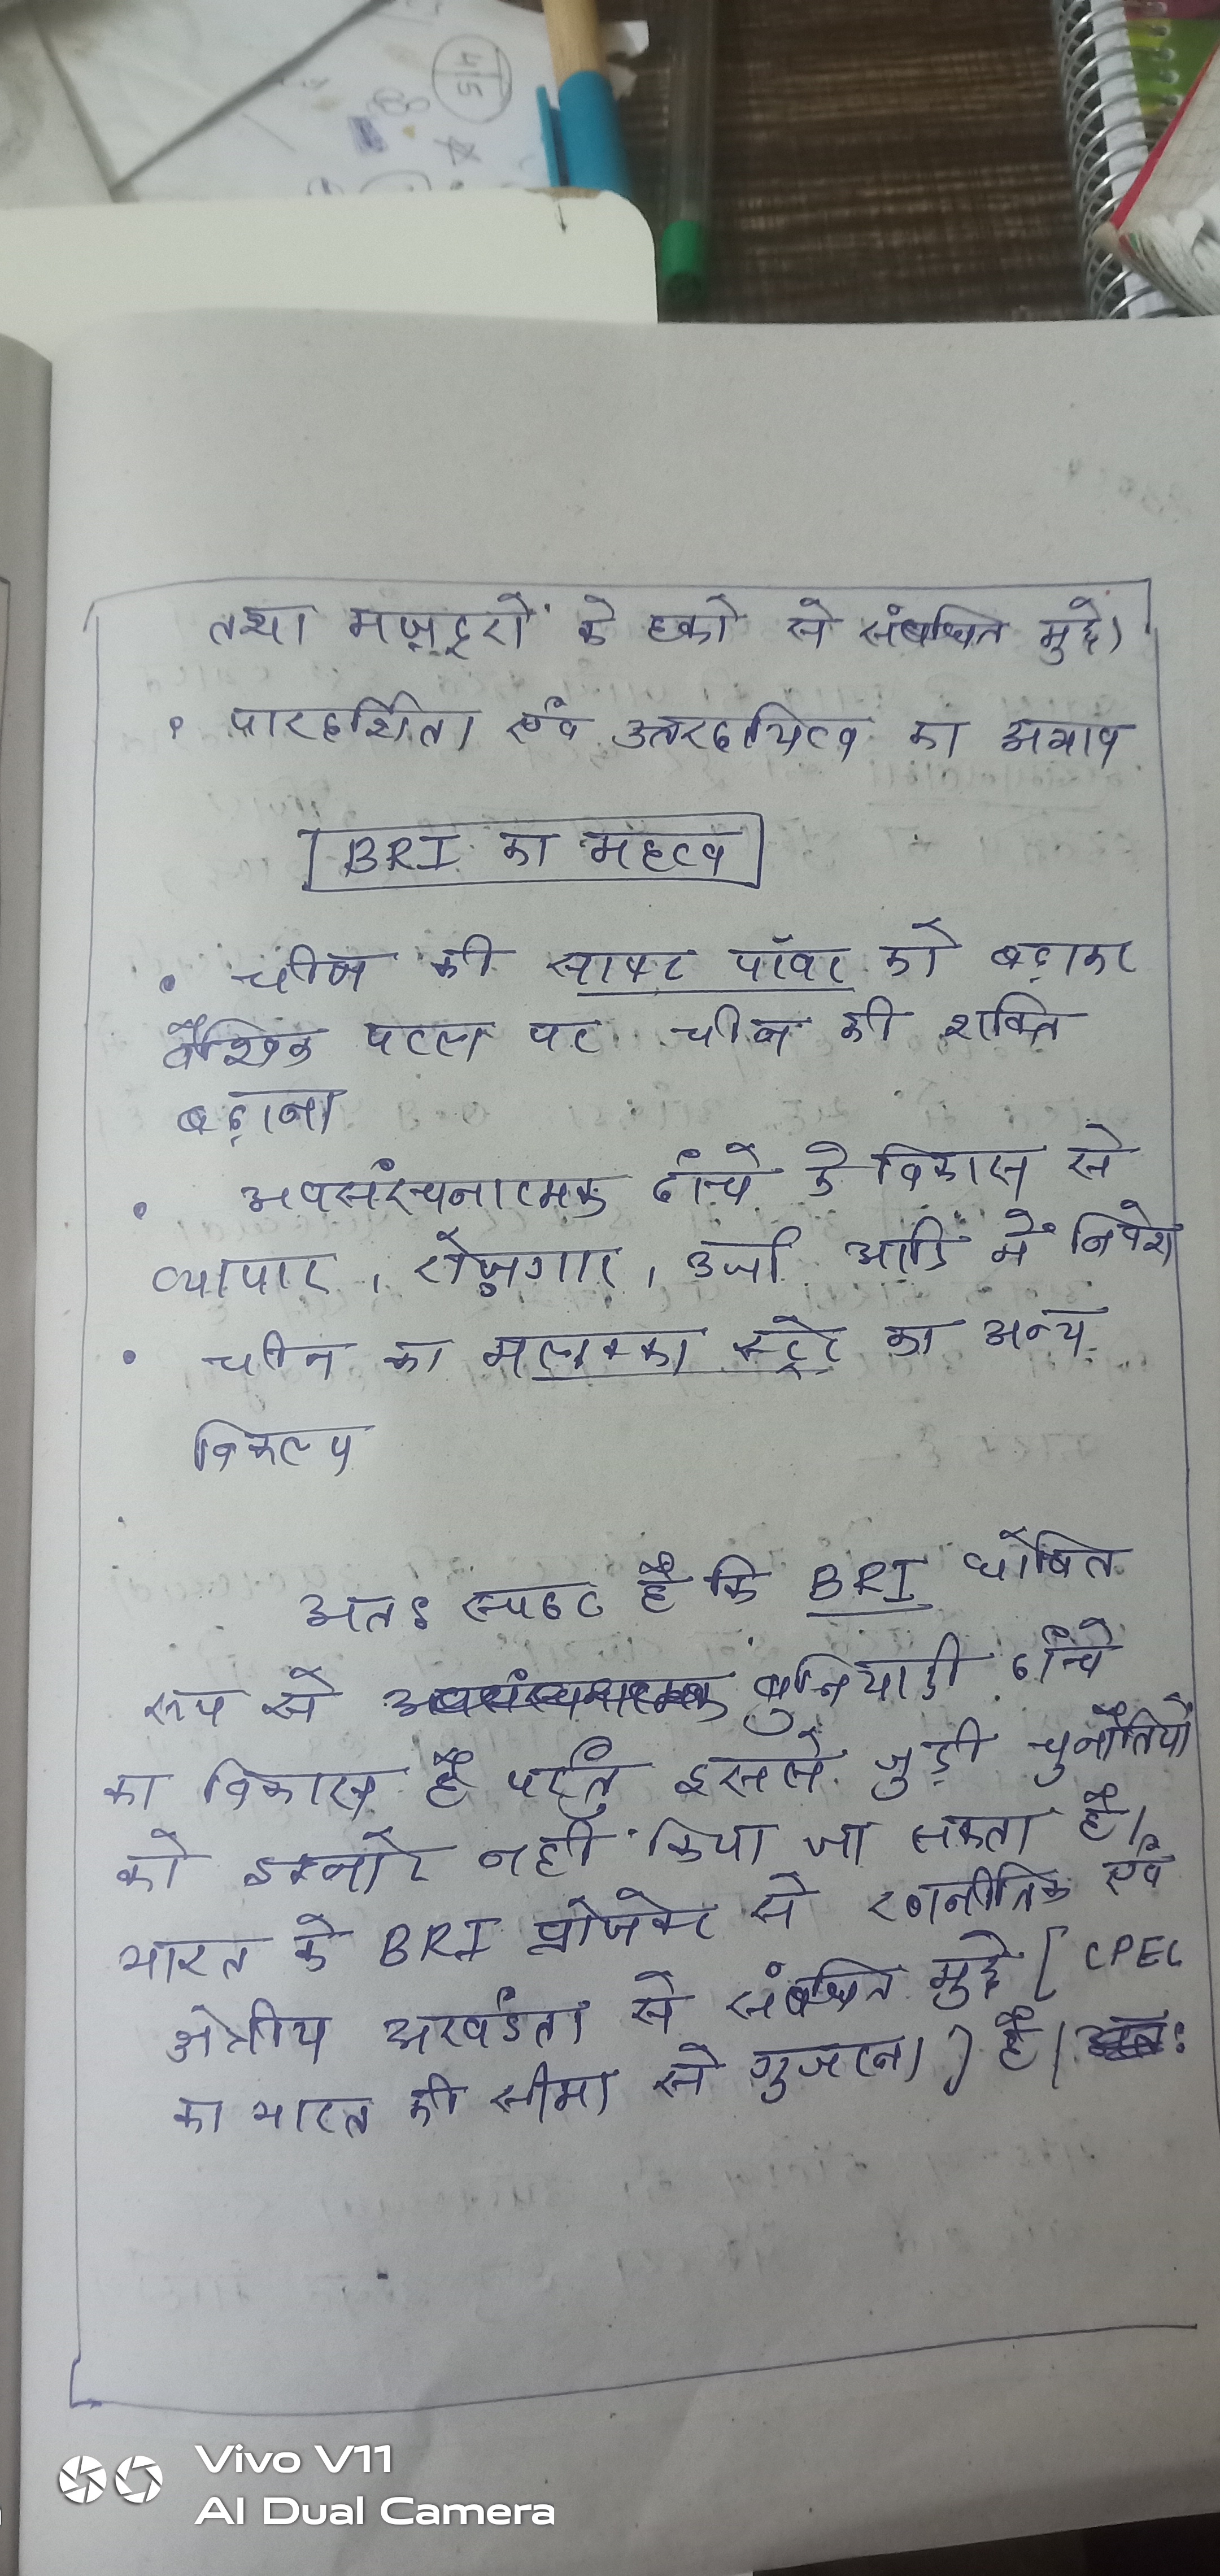 45
तथा मज़दूरों के हको से संबंधित मुद्दे।
• पारदर्शिता एवं उत्तरदायित्व का अभाव
BRI का महत्व
• चीन की साफ्ट पॉवर को बढ़ाकर
वैश्विक पटल पर चीन की शक्ति
बढ़ाना
• अवसंरचनात्मक ढांचे के विकास से
व्यापार, रोज़गार, उर्जा आदि में निवेश
• चीन का मलक्का स्ट्रेट का अन्य
विकल्प
अतः स्पष्ट है कि BRI घोषित
रूप से बुनियादी ढांचे
का विकास है परंतु इससे जुड़ी चुनौतियों
को इग्नोर नहीं किया जा सकता है।
भारत के BRI प्रोजेक्ट से रणनीतिक एवं
क्षेत्रीय अखंडता से संबंधित मुद्दे [CPEC
का भारत की सीमा से गुजरना] है। अतः
Vivo V11
AI Dual Camera